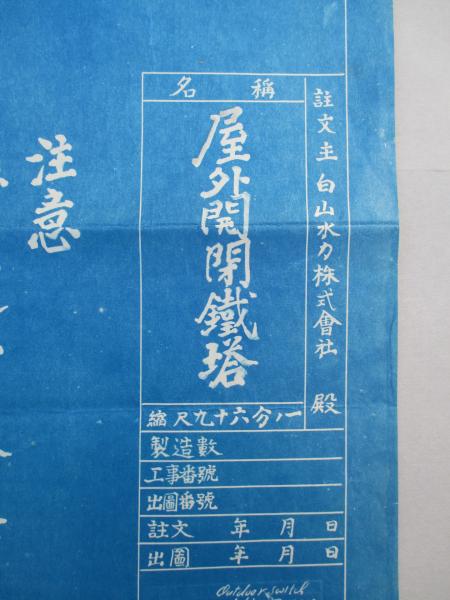 註文主 白山水力株式會社 殿
名稱
屋外開閉鐵塔
縮尺九十六分ノ一
製造數
工事番號
出圖番號
註文 年 月 日
出圖 年 月 日
Outdoor switch
注意